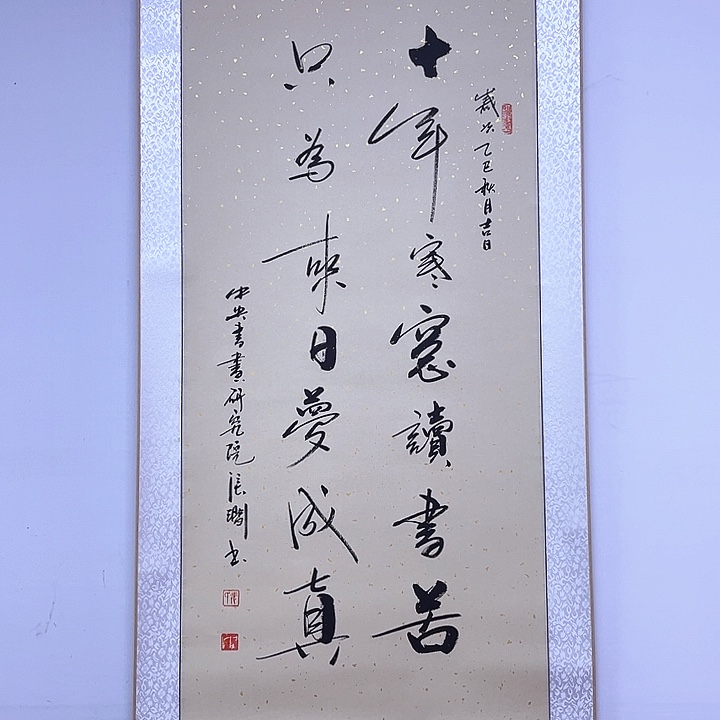 歲次乙巳秋月吉日
十年寒窗讀書苦
只為來日夢成真
中央書畫研究院張書